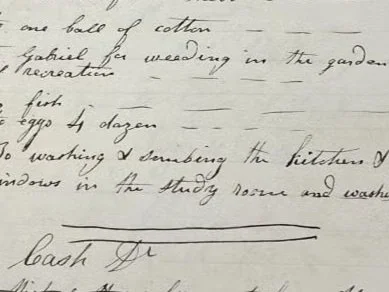 one ball of cotton — — —
Gabriel for weeding in the garden
recreation — — — —
fish — — — —
eggs 4 dozen — — — —
To washing & scrubing the kitchen &
indows in the study room and washe
Cash Dr